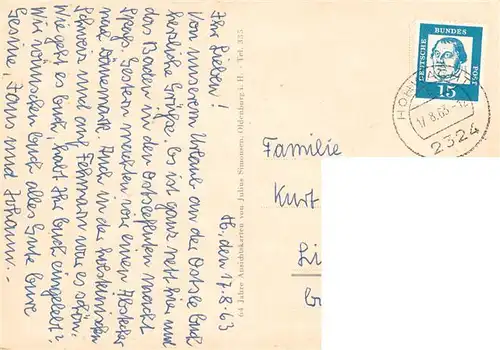 H, den 17.8.63
Ihr Lieben!
Von unserem Urlaub an der Ostsee Euch
herzliche Grüße. Es ist ganz nett hier und
das Baden in den Ostseefluten macht
Spaß. Gestern machten wir einen Abstecher
nach Dänemark. Auch in der holsteinischen
Schweiz und auf Fehmarn war es schön.
Wie geht es Euch, habt Ihr Euch eingelebt?
Wir wünschen Euch alles Gute Eure
Gesine, Hans und Johann.-
64 Jahre Ansichtskarten von Julius Simonsen, Oldenburg i. H. - Tel. 335
DEUTSCHE BUNDES POST
15
17.8.63-12
2324
Familie
Kurt